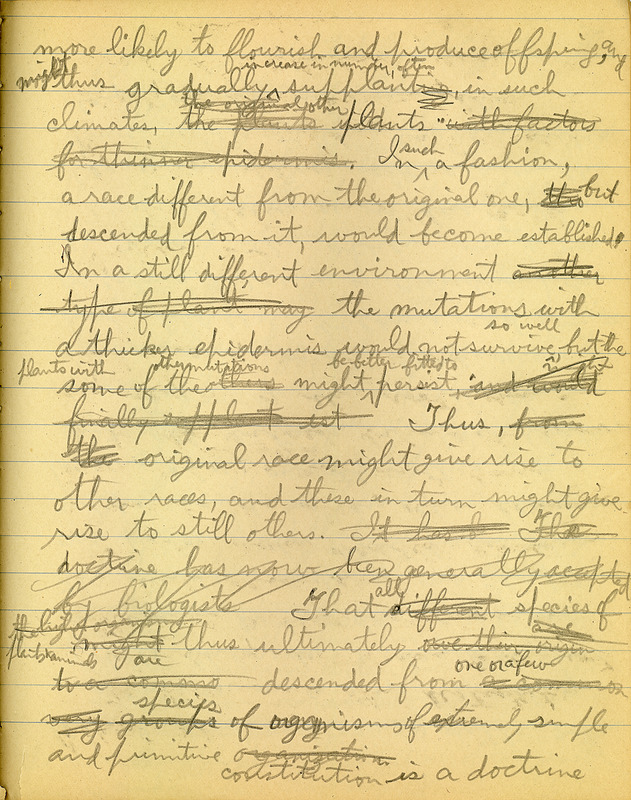 more likely to flourish and produce offspring, and
might thus gradually increase in number, often supplanting, in such
climates, the original other the plants plants with factors
for thinner epidermis. In such a fashion,
a race different from the original one, the but
descended from it, would become established.
In a still different environment another
type of plant may the mutations with
a thicker epidermis would not survive so well but the
plants with some of the other mutations others might be better fitted to persist, and would
finally supplant Thus, from
the original race might give rise to
other races, and these in turn might give
rise to still others. It has b The
doctrine has now been generally accepted
by biologists That all different species of
the higher organisms plants & animals might are thus ultimately owe their origin are
to a commo descended from one or a few a common
very groups species of organisms of extremely simple
and primitive organization
constitution is a doctrine